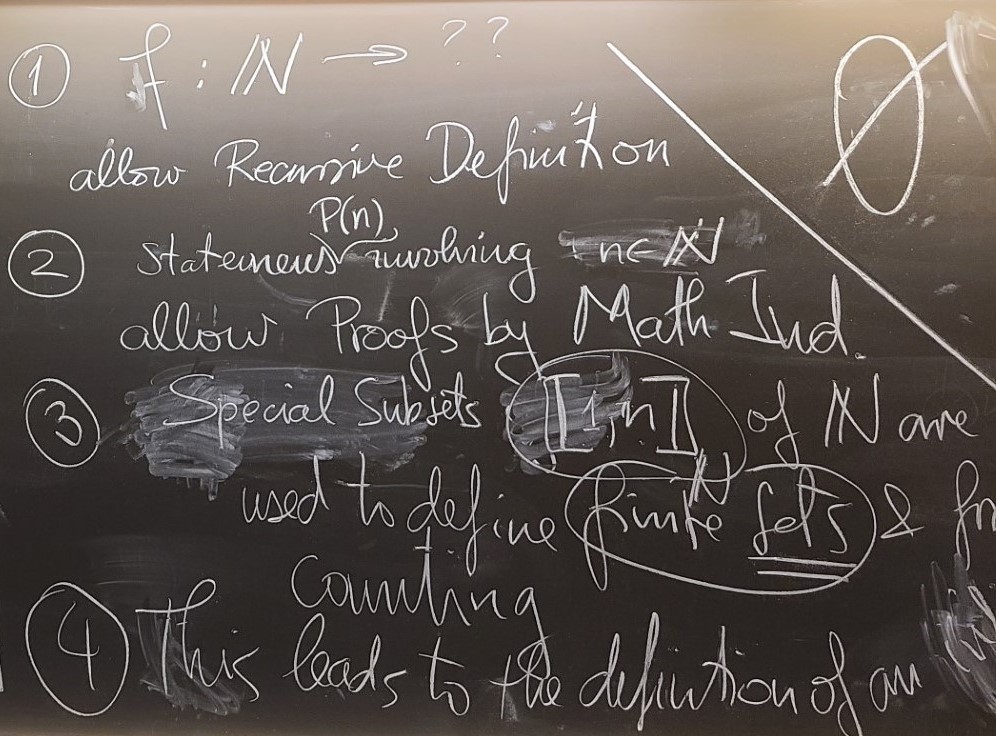 ① f : ℕ → ??
∅
allow Recursive Definition
P(n)
② statements involving n∈ℕ
allow Proofs by Math Ind.
③ Special Subsets [1,n]ℕ of ℕ are
used to define finite sets &
counting
④ This leads to the definition of an